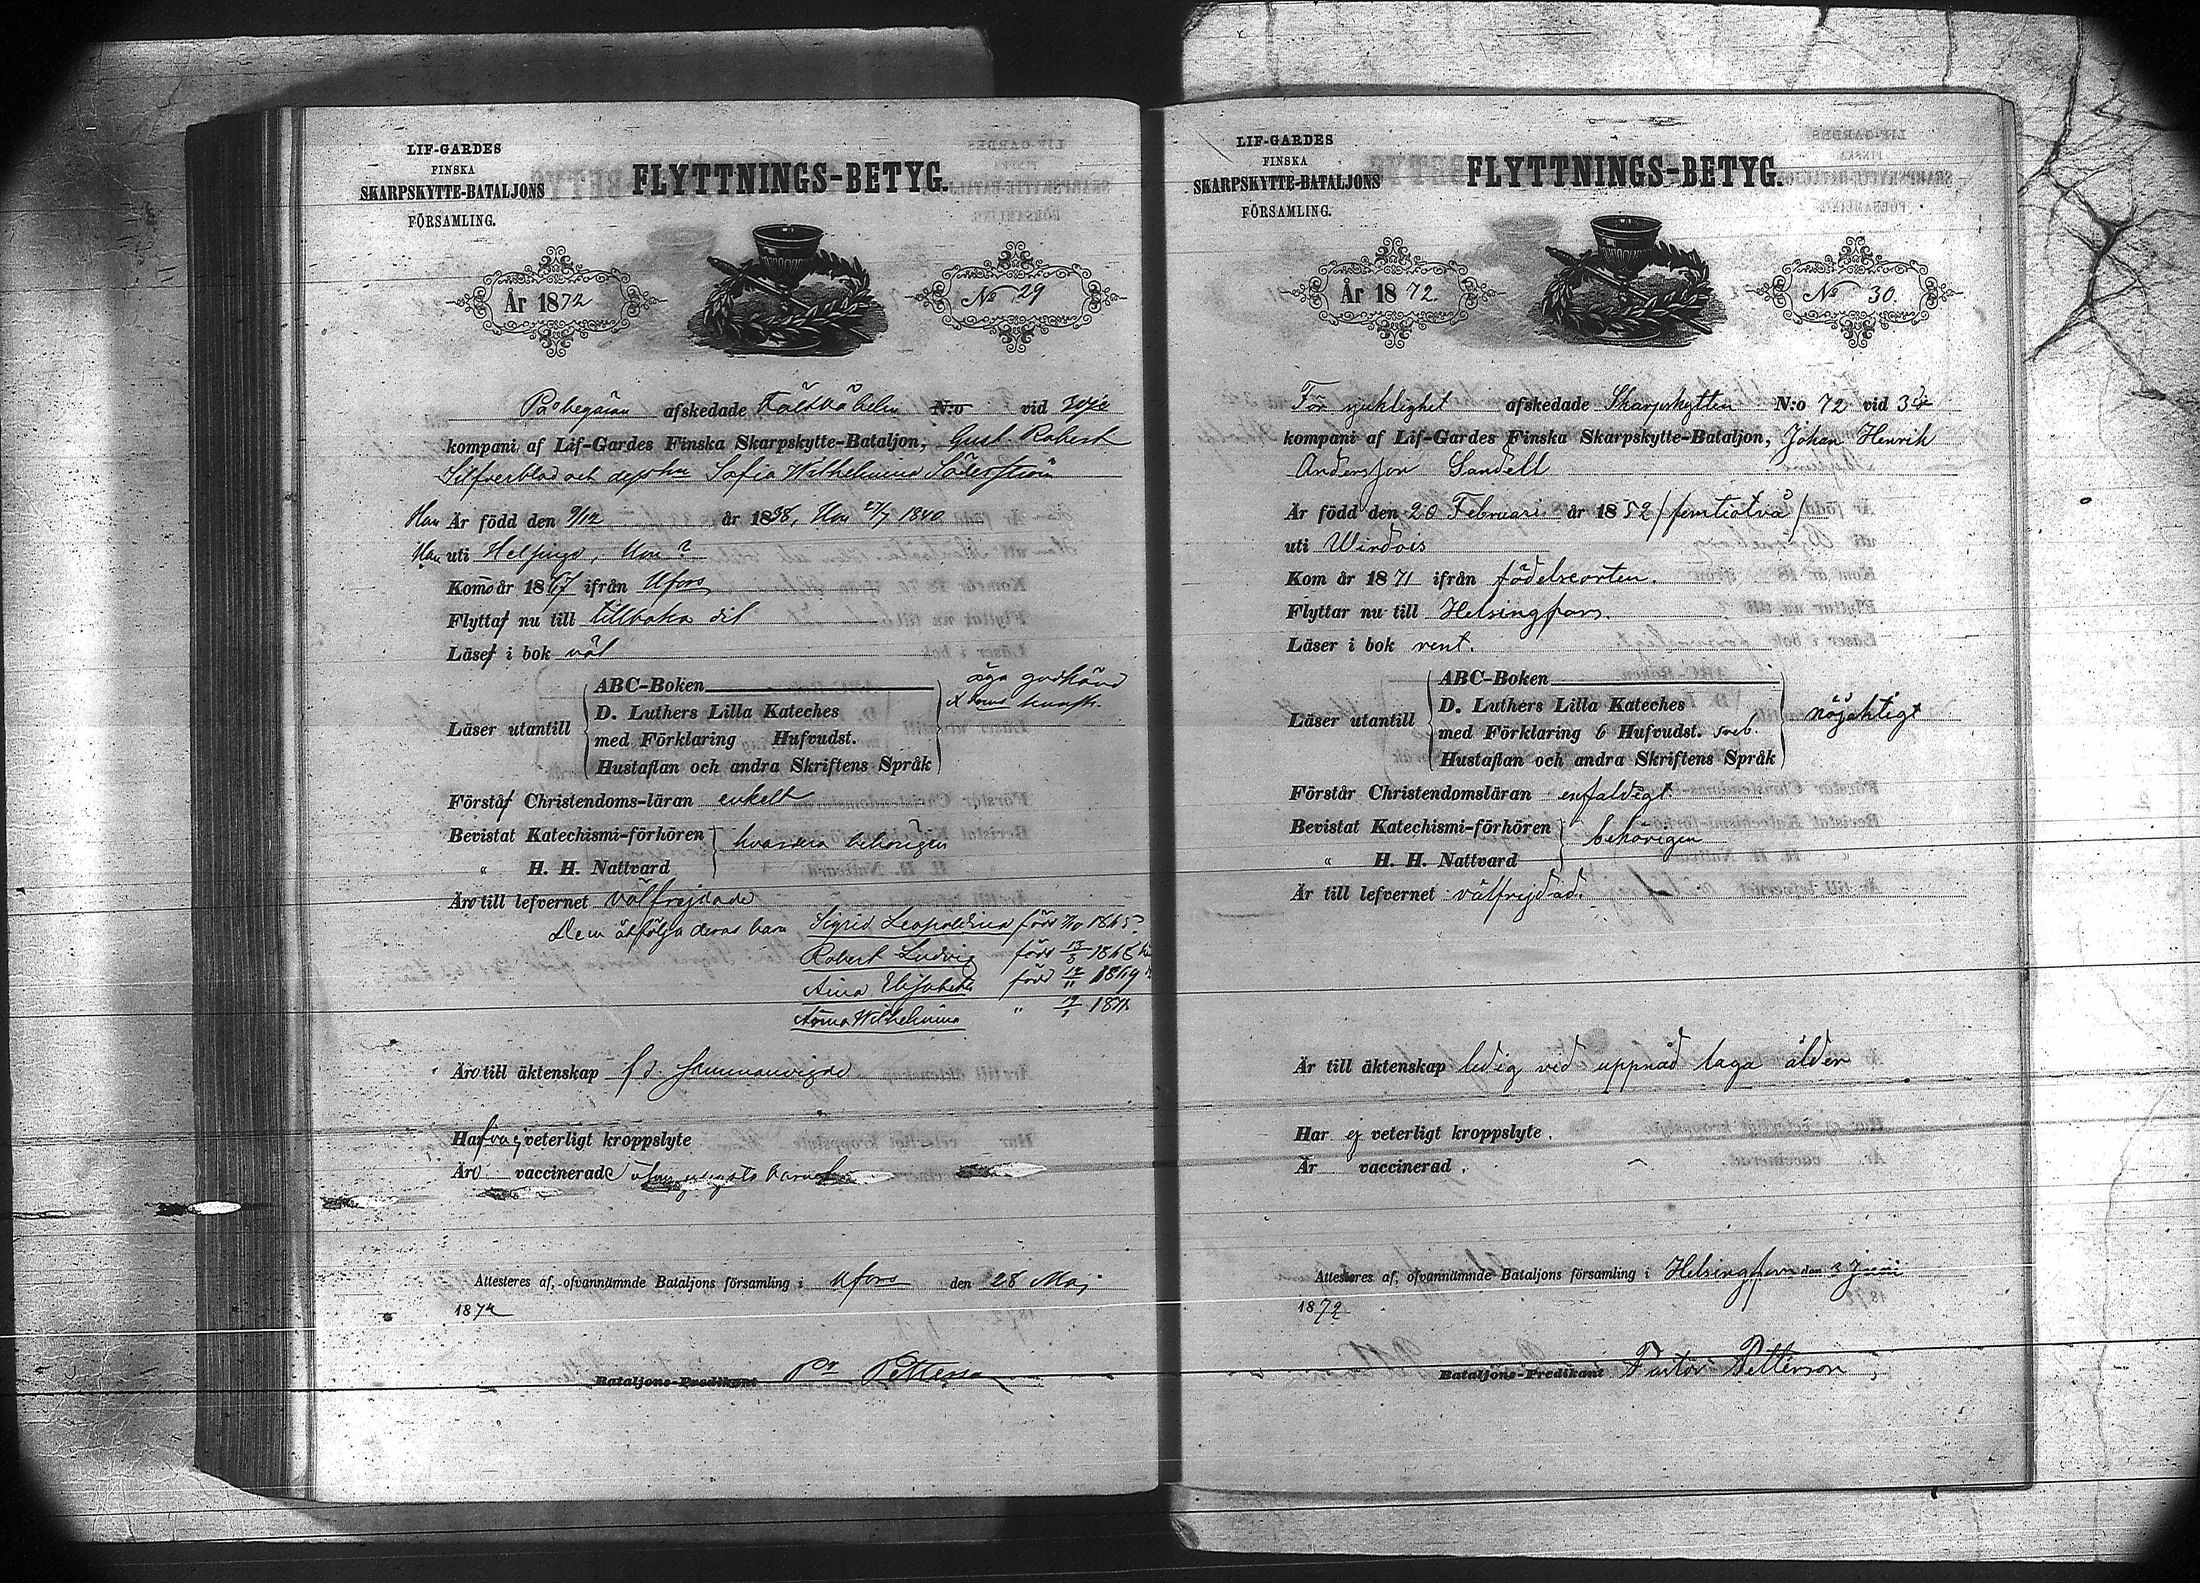 LIF-GARDES
FINSKA
SKARPSKYTTE-BATALJONS
FÖRSAMLING.
FLYTTNINGS-BETYG.
År 1872
No 29
På begäran afskedade Fältväbeln N:o vid 3dje
kompani af Lif-Gardes Finska Skarpskytte-Bataljon, Gust. Robert
Silfverblad och dess hu Sofia Wilhelmina Söderström
Han Är född den 9/12 år 1838, Hon 27/7 1840
Han uti Helsinge, Hon ?
Komo år 1867 ifrån Hfors
Flytta nu till tillbaka dit
Läsa i bok väl
Läser utantill
ABC-Boken
D. Luthers Lilla Kateches
med Förklaring Hufvudst.
Hustaflan och andra Skriftens Språk
äga godkänd
Xdoms kunsk.
Förstå Christendoms-läran enkelt
Bevistat Katechismi-förhören
" H. H. Nattvard
hvardera behörigen
Äro till lefvernet välfrejdade
Dem åtfölja deras barn Sigrid Leopoldina född 1865
Robert Ludvig född
Aina Elisabeth född 1869
Anna Wilhelmina "
Äro till äktenskap sammanvigde
Hafva ej veterligt kroppslyte
Äro vaccinerade utom yngsta barnet
Attesteres af, ofvannämnde Bataljons församling i Hfors den 28 Maj
1872
Bataljons-Predikant Pr Petterson
LIF-GARDES
FINSKA
SKARPSKYTTE-BATALJONS
FÖRSAMLING.
FLYTTNINGS-BETYG.
År 1872.
No 30.
För sjuklighet afskedade Skarpskytten N:o 72 vid 3dje
kompani af Lif-Gardes Finska Skarpskytte-Bataljon, Johan Henrik
Andersson Sandell
Är född den 20 Februari år 1852 /femtiotvå/
uti Wirdois
Kom år 1871 ifrån födelseorten.
Flyttar nu till Helsingfors.
Läser i bok rent.
Läser utantill
ABC-Boken
D. Luthers Lilla Kateches
med Förklaring 6 Hufvudst.
Hustaflan och andra Skriftens Språk
nöjaktigt
Förstår Christendomsläran enfaldigt.
Bevistat Katechismi-förhören
" H. H. Nattvard
behörigen
Är till lefvernet välfrejdad.
Är till äktenskap ledig vid uppnåd laga ålder
Har ej veterligt kroppslyte.
Är vaccinerad.
Attesteres af, ofvannämnde Bataljons församling i Helsingfors den 3 Juni
1872
Bataljons-Predikant Pastor Petterson,